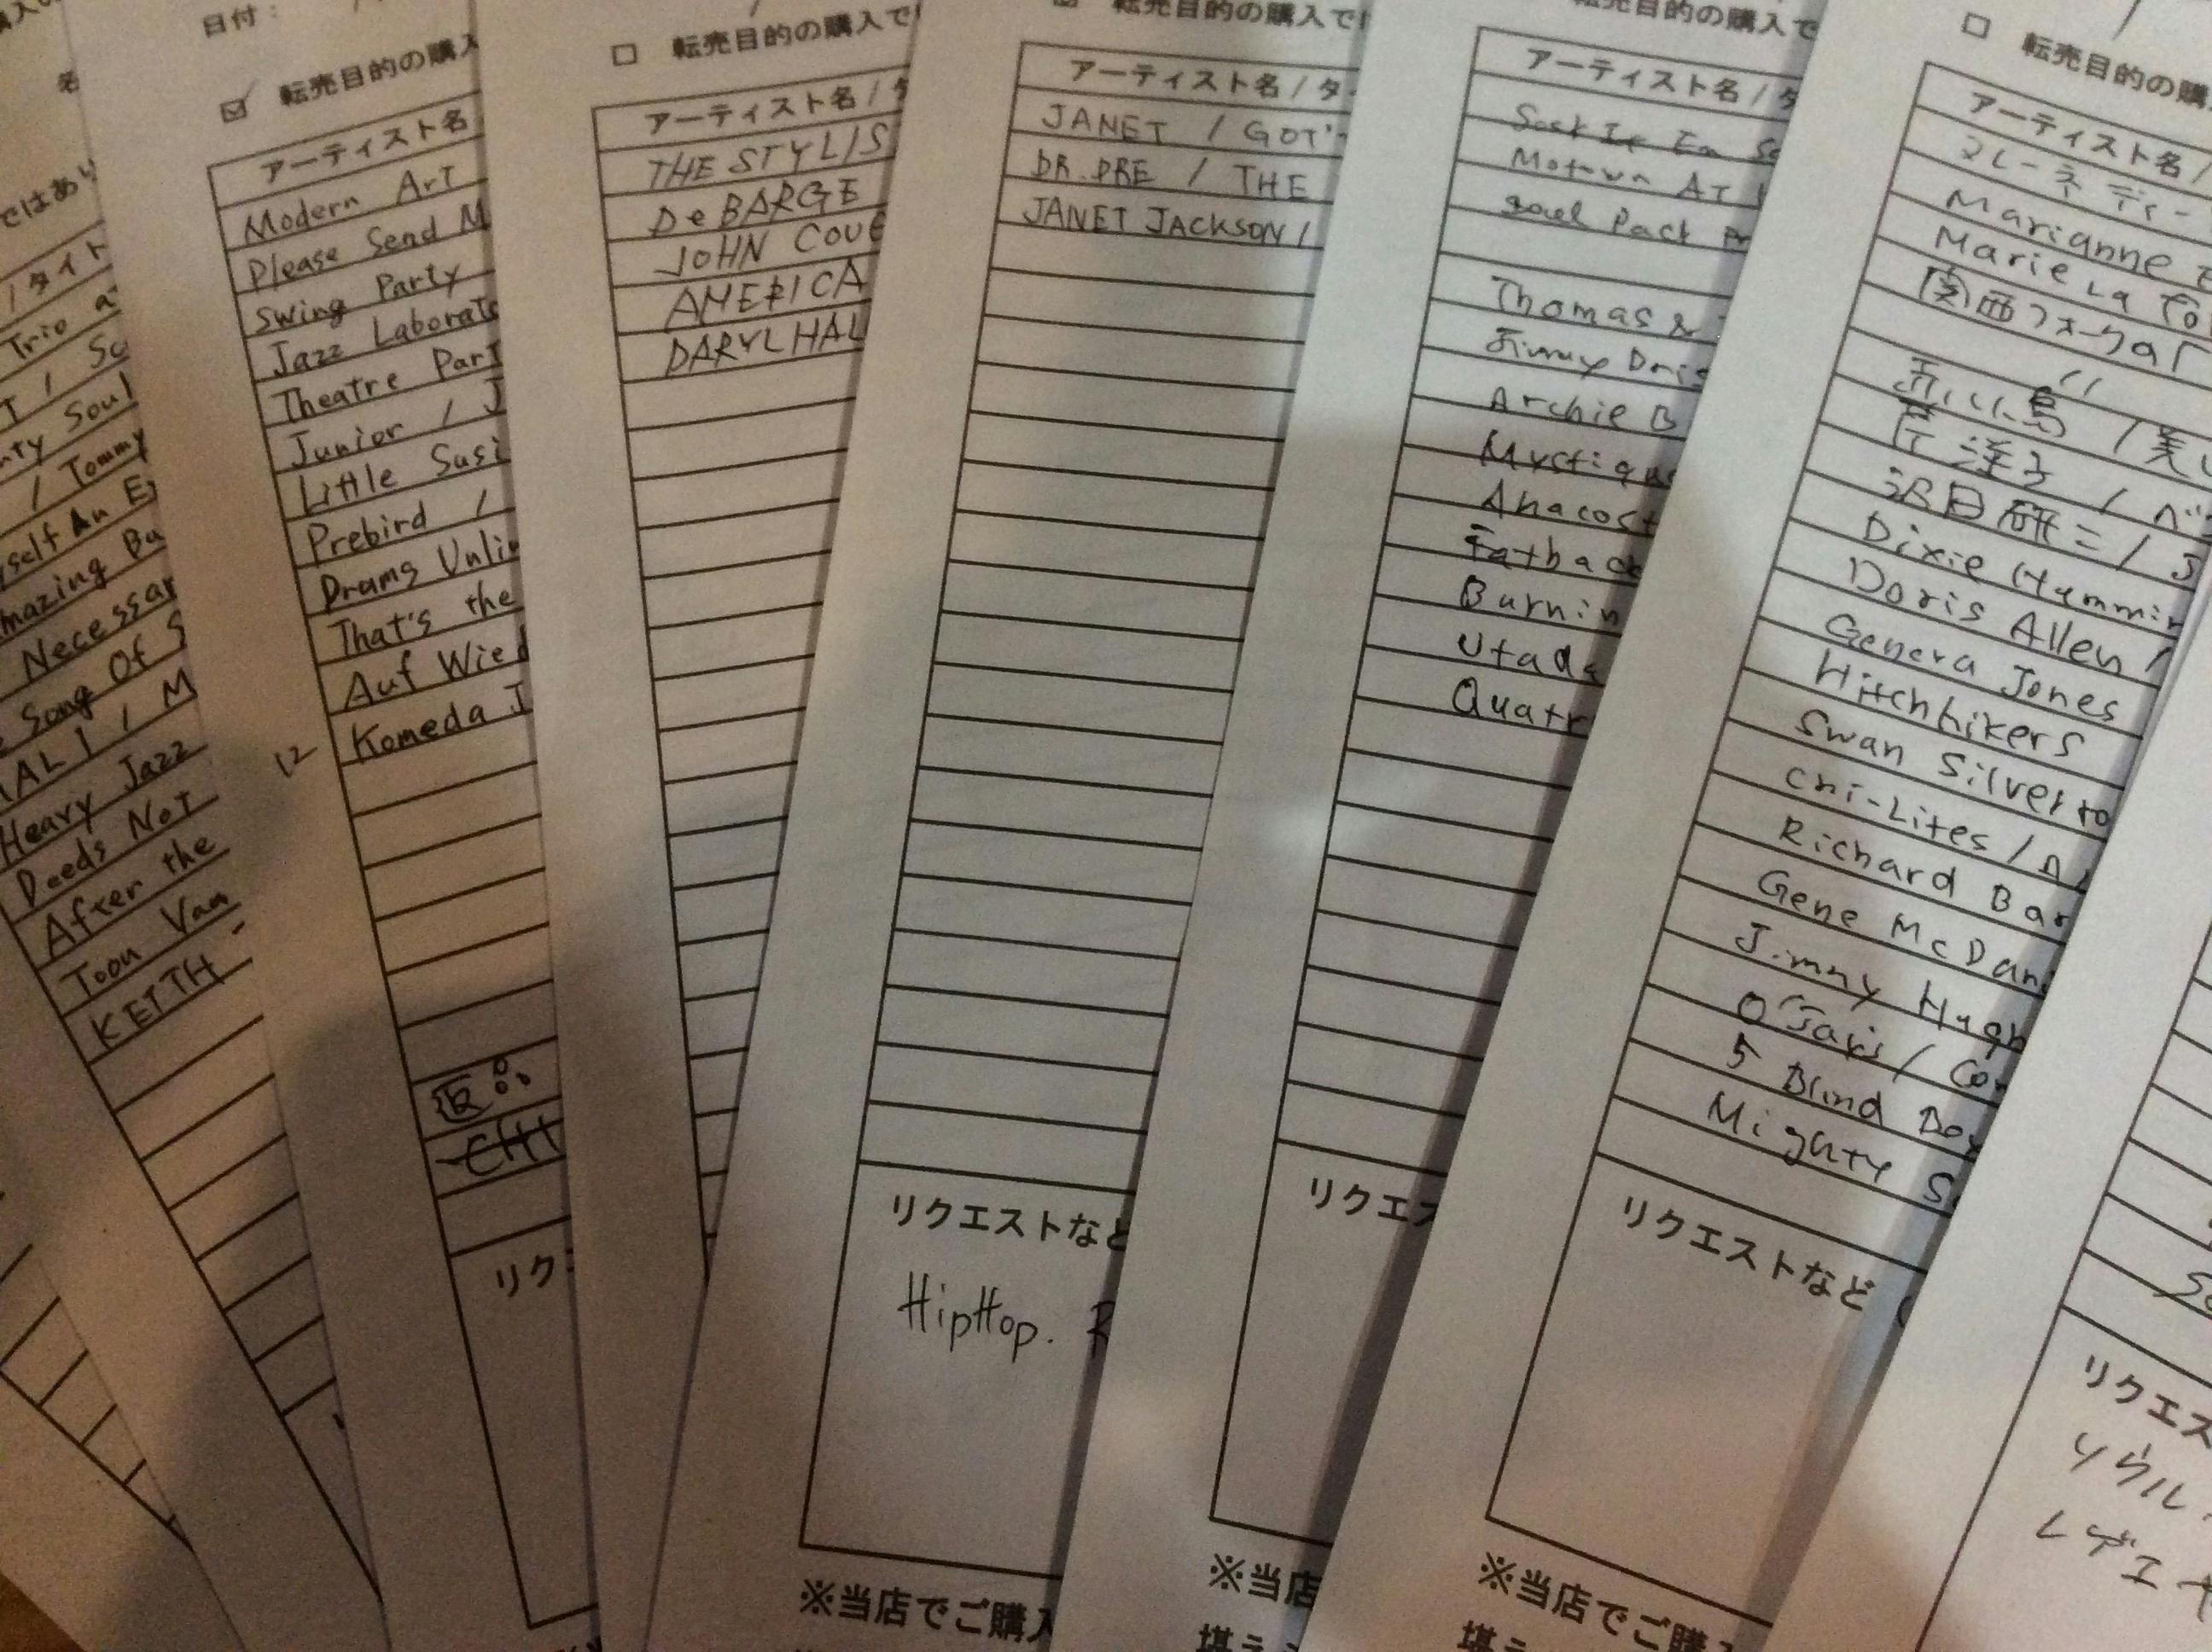 ではあり
/ タイト
Trio
Soul
/ Tommy
myself An
Amazing Ba
Necessar
Song Of S
/ M
Heavy Jazz
Deeds Not
After the
Toon Van
KEITH
日付：
☑ 転売目的の購入
アーティスト名
Modern Art
Please Send M
Swing Party
Jazz Laborato
Theatre Part
Junior / J
Little Susi
Prebird /
Drums Unli
That's the
Auf Wied
Komeda J
12
リク
□ 転売目的の購入で
アーティスト名 / タ
THE STYLIS
DeBARGE
JOHN
AMERICA
DARYL HAL
転売目的の購入で
アーティスト名 / タ
JANET / GOT
DR. DRE / THE
JANET JACKSON /
リクエストなど
HipHop. R
※当店でご購入
転売目的の購入で
アーティスト名 / タ
Motown At
Soul Pact
Thomas &
Jimmy
Archie B
Mystique
Anacost
Fatback
Burnin
Utada
Quatr
リクエス
※当店
堪え
□ 転売目的の購
アーティスト名 /
Marianne F
Marie La
関西フォークの
〃
/ 美し
洋子 / ベ
Dixie Hummin
Doris Allen /
Geneva Jones
Hitchhikers
Swan Silverto
Chi-Lites / A
Richard Bar
Gene McDan
Jimmy Hugh
O'Jays / Con
5 Blind Boy
Mighty S
リクエストなど
※当店でご購入
堪え
リクエス
ソウル
レゲエ